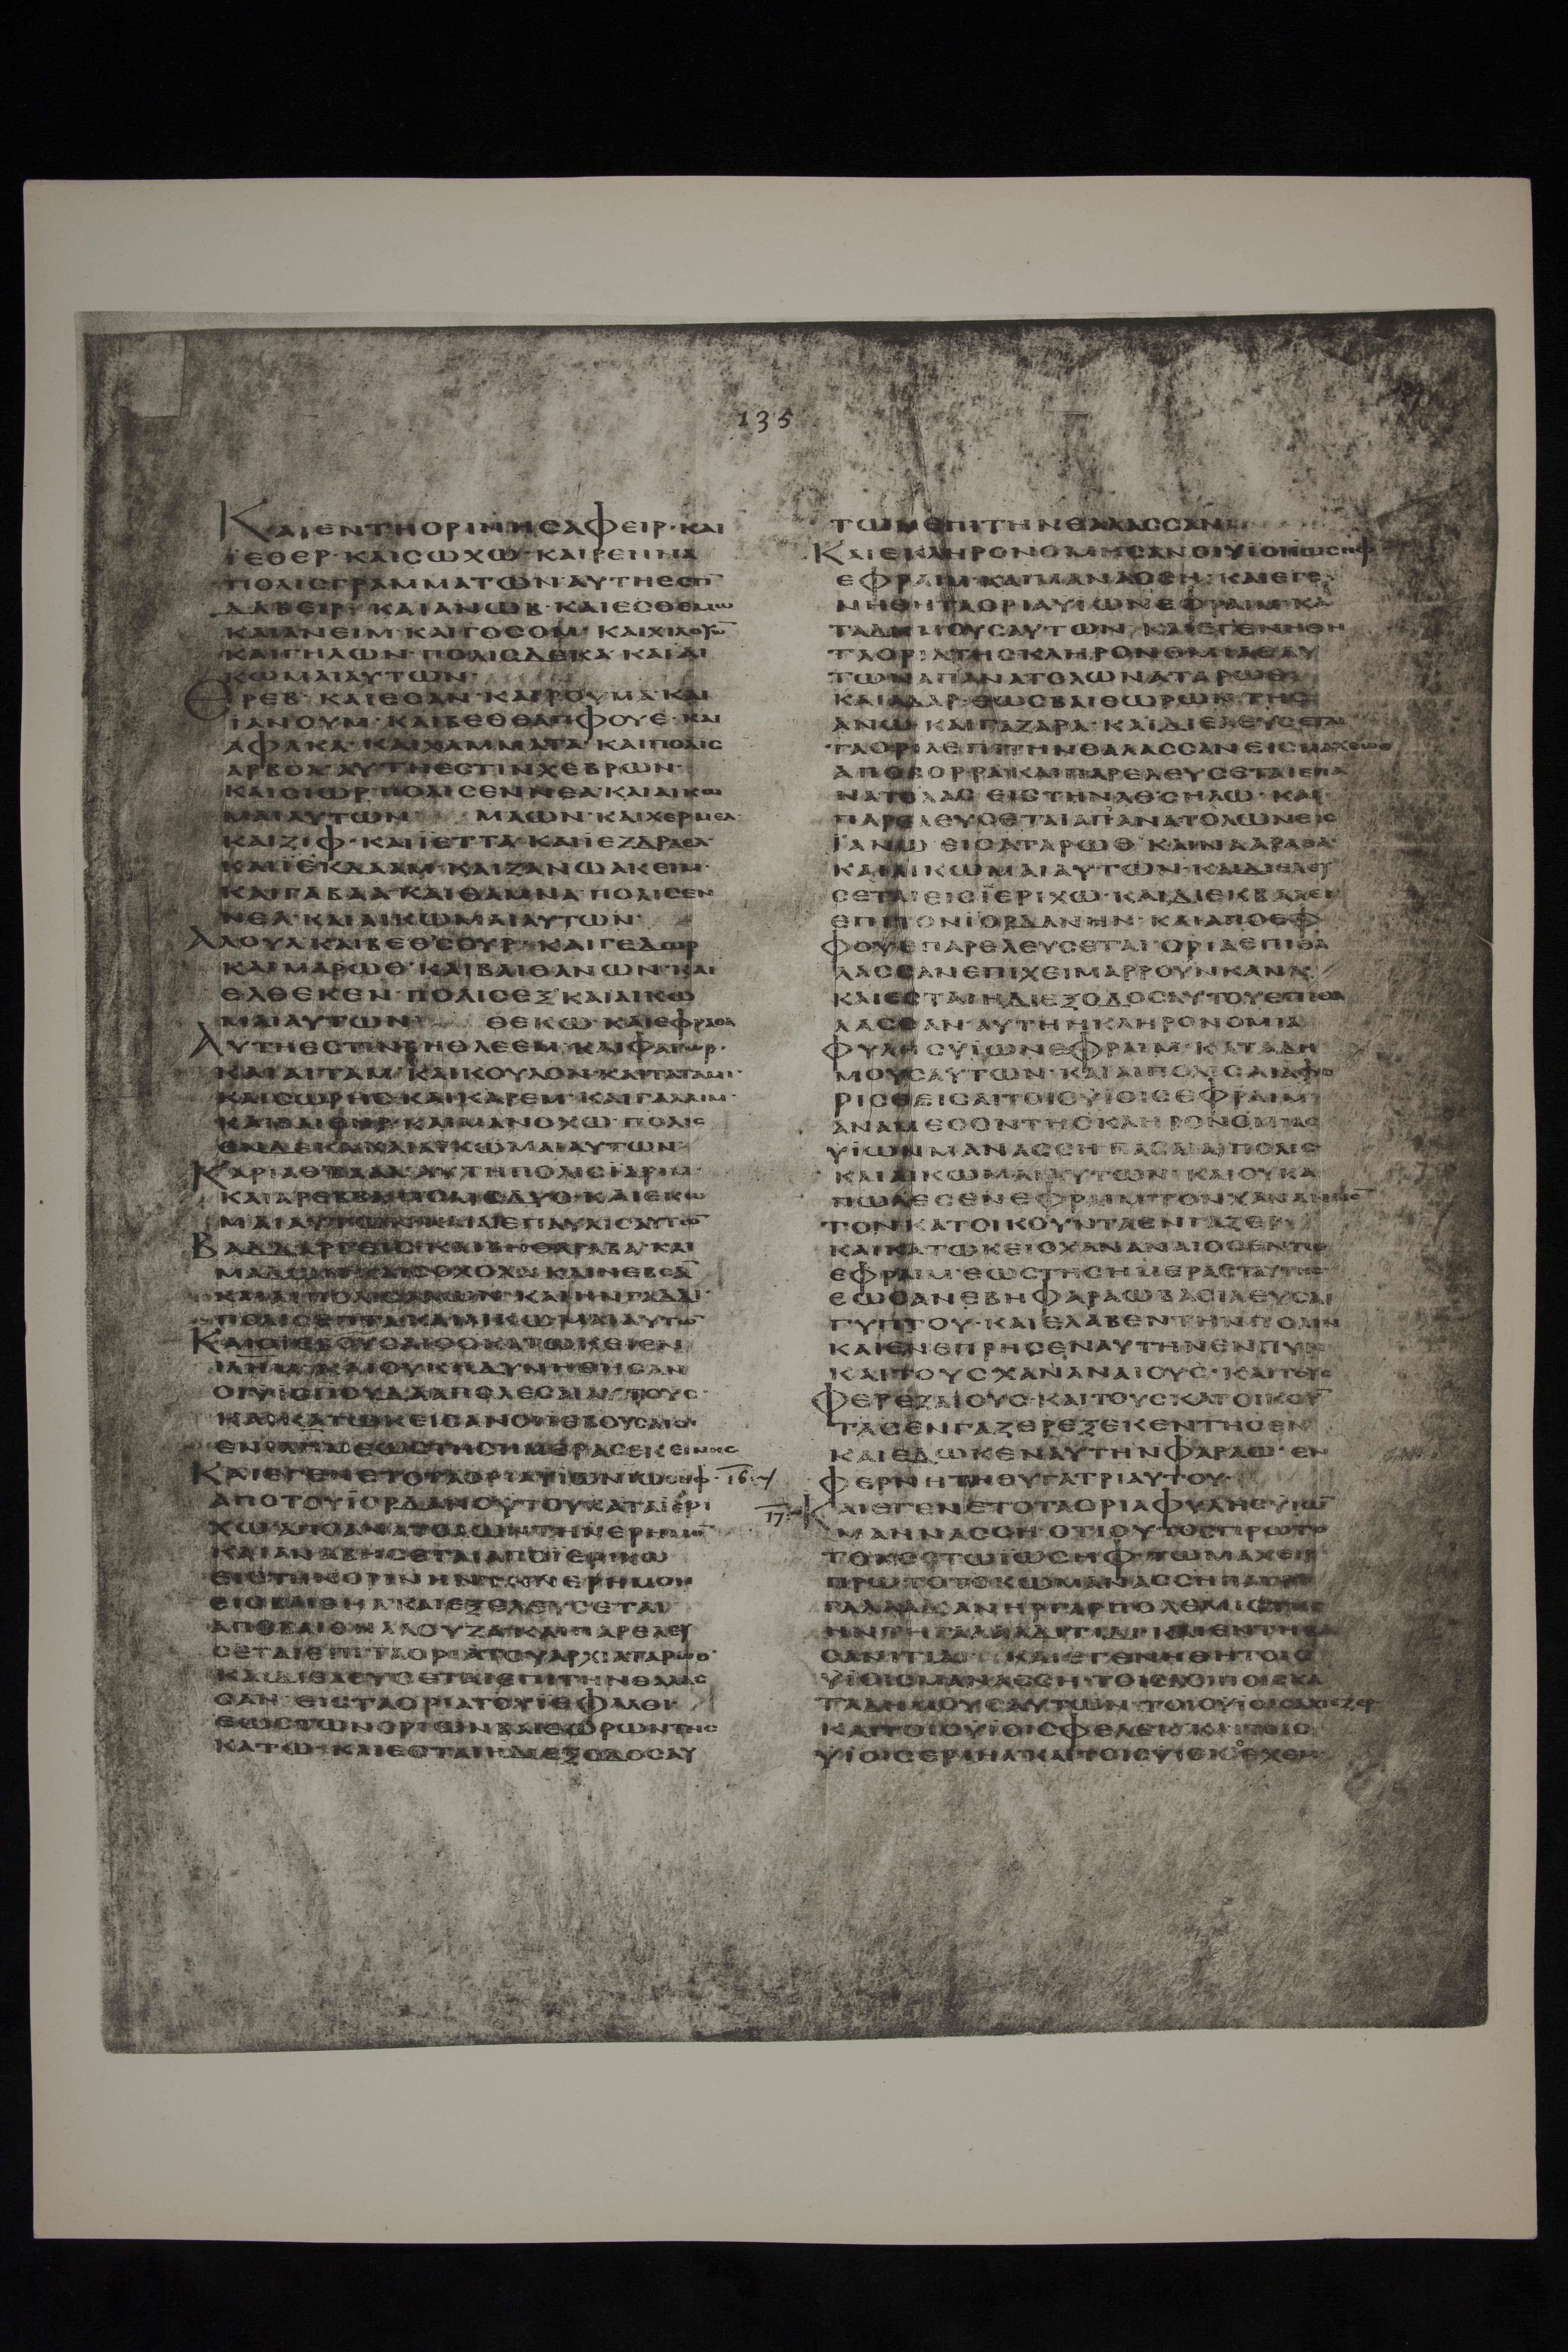 135
ΚΑΙΕΝΤΗΟΡΙΝΗCΑΦΕΙΡ·ΚΑΙ
ΪΕΘΕΡ·ΚΑΙCΩΧΩ·ΚΑΙΡΕΝΝΑ
ΠΟΛΙCΓΡΑΜΜΑΤΩΝ·ΑΥΤΗΕCΤΙ̅
ΔΑΒΕΙΡ·ΚΑΙΑΝΩΒ·ΚΑΙΕCΘΕΜΩ
ΚΑΙΑΝΕΙΜ·ΚΑΙΓΟCΟΜ·
ΚΑΙΓΗΛΩΝ·ΠΟΛΙCΔΕΚΑ·ΚΑΙΑΙ
ΚΩΜΑΙΑΥΤΩΝ·
ΕΡΕΒ·ΚΑΙΕCΑΝ·ΚΑΙΡΟΥΜΑ·ΚΑΙ
ΪΑΝΟΥΜ·ΚΑΙΒΕΘΘΑΠΦΟΥΕ·ΚΑΙ
ΑΦΑΚΑ·ΚΑΙΧΑΜΜΑΤΑ·ΚΑΙΠΟΛΙC
ΑΡΒΟΑ·ΑΥΤΗΕCΤΙΝΧΕΒΡΩΝ·
ΚΑΙCΙΩΡ·ΠΟΛΙCΕΝΝΕΑ·ΚΑΙΑΙΚΩ
ΜΑΙΑΥΤΩΝ· ΜΑΩΝ·ΚΑΙΧΕΡΜΕΛ·
ΚΑΙΖΙΦ·ΚΑΙΪΕΤΤΑ·ΚΑΙΙΕΖΔΡΑΕΛ·
ΚΑΙΪΕΚΔΑΑΜ·ΚΑΙΖΑΝΩΑΚΕΙΜ·
ΚΑΙΓΑΒΑΑ·ΚΑΙΘΑΜΝΑ·ΠΟΛΙCΕΝ
ΝΕΑ·ΚΑΙΑΙΚΩΜΑΙΑΥΤΩΝ·
ΑΛΟΥΛ·ΚΑΙΒΕΘCΟΥΡ·ΚΑΙΓΕΔΩΡ
ΚΑΙΜΑΡΩΘ·ΚΑΙΒΑΙΘΑΝΩΝ·ΚΑΙ
ΕΛΘΕΚΕΝ·ΠΟΛΙCΕΞ·ΚΑΙΑΙΚΩ
ΜΑΙΑΥΤΩΝ· ΘΕΚΩ·ΚΑΙΕΦΡΑΘΑ
ΑΥΤΗΕCΤΙΝΒΗΘΛΕΕΜ·ΚΑΙΦΑΓΩΡ·
ΚΑΙΑΙΤΑΜ·ΚΑΙΚΟΥΛΟΝ·ΚΑΙΤΑΤΑΜΙ·
ΚΑΙCΩΡΗC·ΚΑΙΚΑΡΕΜ·ΚΑΙΓΑΛΛΙΜ·
ΚΑΙΒΑΙΘΗΡ·ΚΑΙΜΑΝΟΧΩ·ΠΟΛΙC
ΕΝΔΕΚΑ·ΚΑΙΑΙΚΩΜΑΙΑΥΤΩΝ·
ΚΑΡΙΑΘΒΑΑΛ·ΑΥΤΗΠΟΛΙCΪΑΡΙΜ·
ΜΑΙΑΥΤΩΝ·ΚΑΙΑΙΕΠΑΥΛΙCΑΥΤΩ̅
ΒΑΔΔΑΡΓΕΙC·ΚΑΙΒΗΘΑΡΑΒΑ·ΚΑΙ
ΜΑΔΩΝ·ΚΑΙCΟΧΟΧΑ·ΚΑΙΝΕΒCΑ̅
ΠΟΛΙCΕΠΤΑ·ΚΑΙΑΙΚΩΜΑΙΑΥΤΩ̅
ΚΑΙΟΙΕΒΟΥCΑΙΟCΚΑΤΩΚΕΙΕΝ
ΙΛΗΜ·ΚΑΙΟΥΚΗΔΥΝΗΘΗCΑΝ
ΟΙΥΙΟΙΙΟΥΔΑΑΠΟΛΕCΑΙΑΥΤΟΥC·
ΚΑΙΚΑΤΩΚΕΙCΑΝΟΙΪΕΒΟΥCΑΙΟΙ
ΕΝΙΛΗΜΕΩCΤΗCΗΜΕΡΑCΕΚΕΙΝΗC
ΚΑΙΕΓΕΝΕΤΟΤΑΟΡΙΑΥΙΩΝΙΩCΗΦ· 16
ΑΠΟΤΟΥΪΟΡΔΑΝΟΥΤΟΥΚΑΤΑΪΕΡΙ
ΧΩΑΠΟΑΝΑΤΟΛΩΝ·ΤΗΝΕΡΗΜΟ̅
ΚΑΙΑΝΑΒΗCΕΤΑΙΑΠΟΪΕΡΙΧΩ
ΕΙCΤΗΝΟΡΙΝΗΝΤΗΝΕΡΗΜΟΝ
ΕΙCΒΑΙΘΗΛ·ΚΑΙΕΞΕΛΕΥCΕΤΑΙ
ΑΠΟΒΑΙΘΗΛΛΟΥΖΑ·ΚΑΙΠΑΡΕΛΕΥ
CΕΤΑΙΕΠΙΤΑΟΡΙΑΤΟΥΑΡΧΙΑΤΑΡΩΘ·
ΚΑΙΔΙΕΛΕΥCΕΤΑΙΕΠΙΤΗΝΘΑΛΑC
CΑΝ·ΕΙCΤΑΟΡΙΑΤΟΥΪΕΦΑΛΘΙ·
ΕΩCΤΩΝΟΡΙΩΝΒΑΙΘΩΡΩΝΤΗC
ΚΑΤΩ·ΚΑΙΕCΤΑΙΗΔΙΕΞΟΔΟCΑΥ
ΤΩΝΕΠΙΤΗΝΘΑΛΑCCΑΝ
ΚΑΙΕΚΛΗΡΟΝΟΜΗCΑΝΟΙΥΙΟΙΙΩCΗΦ
ΕΦΡΑΙΜ·ΚΑΙΜΑΝΑCCΗ·ΚΑΙΕΓΕ
ΝΗΘΗΤΑΟΡΙΑΥΙΩΝΕΦΡΑΙΜ·ΚΑ
ΤΑΔΗΜΟΥCΑΥΤΩΝ·ΚΑΙΕΓΕΝΗΘΗ
ΤΑΟΡΙΑΤΗCΚΛΗΡΟΝΟΜΙΑCΑΥ
ΤΩΝΑΠΑΝΑΤΟΛΩΝΑΤΑΡΩΘ
ΚΑΙΑΔΑΡ·ΕΩCΒΑΙΘΩΡΩΝΤΗC
ΑΝΩ·ΚΑΙΓΑΖΑΡΑ·ΚΑΙΔΙΕΛΕΥCΕΤΑΙ
ΑΠΟΒΟΡΡΑ·ΚΑΙΠΑΡΕΛΕΥCΕΤΑΙΕΠΑ
ΝΑΤΟΛΑC ΕΙCΤΗΝΑΘCΗΛΩ·ΚΑΙ
ΠΑΡΕΛΕΥCΕΤΑΙΑΠΑΝΑΤΟΛΩΝΕΙC
ΪΑΝΩ ΕΙCΑΤΑΡΩΘ·ΚΑΙΝΑΑΡΑΘΑ
ΚΑΙΑΙΚΩΜΑΙΑΥΤΩΝ·ΚΑΙΔΙΕΛΕΥ
CΕΤΑΙΕΙCΪΕΡΙΧΩ·ΚΑΙΔΙΕΚΒΑΛΕΙ
ΕΠΙΤΟΝΪΟΡΔΑΝΗΝ·ΚΑΙΑΠΟΕΦ
ΦΟΥΕΠΑΡΕΛΕΥCΕΤΑΙΟΡΙΑΕΠΙΘΑ
ΛΑCCΑΝΕΠΙΧΕΙΜΑΡΡΟΥΝΚΑΝΑ
ΚΑΙΕCΤΑΙΗΔΙΕΞΟΔΟCΑΥΤΟΥΕΠΙΘΑ
ΛΑCCΑΝ·ΑΥΤΗΗΚΛΗΡΟΝΟΜΙΑ
ΦΥΛΗCΥΙΩΝΕΦΡΑΙΜ·ΚΑΤΑΔΗ
ΜΟΥCΑΥΤΩΝ·ΚΑΙΑΙΠΟΛΙCΑΙΑΦΟ
ΡΙCΘΕΙCΑΙΤΟΙCΥΙΟΙCΕΦΡΑΙΜ
ΑΝΑΜΕCΟΝΤΗCΚΛΗΡΟΝΟΜΙΑC
ΥΙΩΝΜΑΝΑCCΗΠΑCΑΙΑΙΠΟΛΙC
ΚΑΙΑΙΚΩΜΑΙΑΥΤΩΝ·ΚΑΙΟΥΚΑ
ΠΩΛΕCΕΝΕΦΡΑΙΜΤΟΝΧΑΝΑΝΑΙΟ̅
ΤΟΝΚΑΤΟΙΚΟΥΝΤΑΕΝΓΑΖΕΡ
ΚΑΙΚΑΤΩΚΕΙΟΧΑΝΑΝΑΙΟCΕΝΤΩ
ΕΦΡΑΙΜ·ΕΩCΤΗCΗΜΕΡΑCΤΑΥΤΗC
ΕΩCΑΝΕΒΗΦΑΡΑΩΒΑCΙΛΕΥCΑΙ
ΓΥΠΤΟΥ·ΚΑΙΕΛΑΒΕΝΤΗΝΠΟΛΙΝ
ΚΑΙΕΝΕΠΡΗCΕΝΑΥΤΗΝΕΝΠΥΡΙ
ΚΑΙΤΟΥCΧΑΝΑΝΑΙΟΥC·ΚΑΙΤΟΥC
ΦΕΡΕΖΑΙΟΥC·ΚΑΙΤΟΥCΚΑΤΟΙΚΟΥ̅
ΤΑCΕΝΓΑΖΕΡΕΞΕΚΕΝΤΗCΕΝ
ΚΑΙΕΔΩΚΕΝΑΥΤΗΝΦΑΡΑΩ·ΕΝ
ΦΕΡΝΗΤΗΘΥΓΑΤΡΙΑΥΤΟΥ·
17 ΚΑΙΕΓΕΝΕΤΟΤΑΟΡΙΑΦΥΛΗCΥΙΩ̅
ΜΑΝΝΑCCΗ·ΟΤΙΟΥΤΟCΠΡΩΤΟ
ΤΟΚΟCΤΩΪΩCΗΦ·ΤΩΜΑΧΕΙΡ
ΠΡΩΤΟΤΟΚΩΜΑΝΑCCΗΠΑΤΡΙ
ΥΙΟΙCΜΑΝΑCCΗ·ΤΟΙCΛΟΙΠΟΙCΚΑ
ΤΑΔΗΜΟΥCΑΥΤΩΝ·ΤΟΙCΥΙΟΙCΑΧΙΕΖΕΡ
ΚΑΙΤΟΙCΥΙΟΙCΦΕΛΕΚ·ΚΑΙΤΟΙC